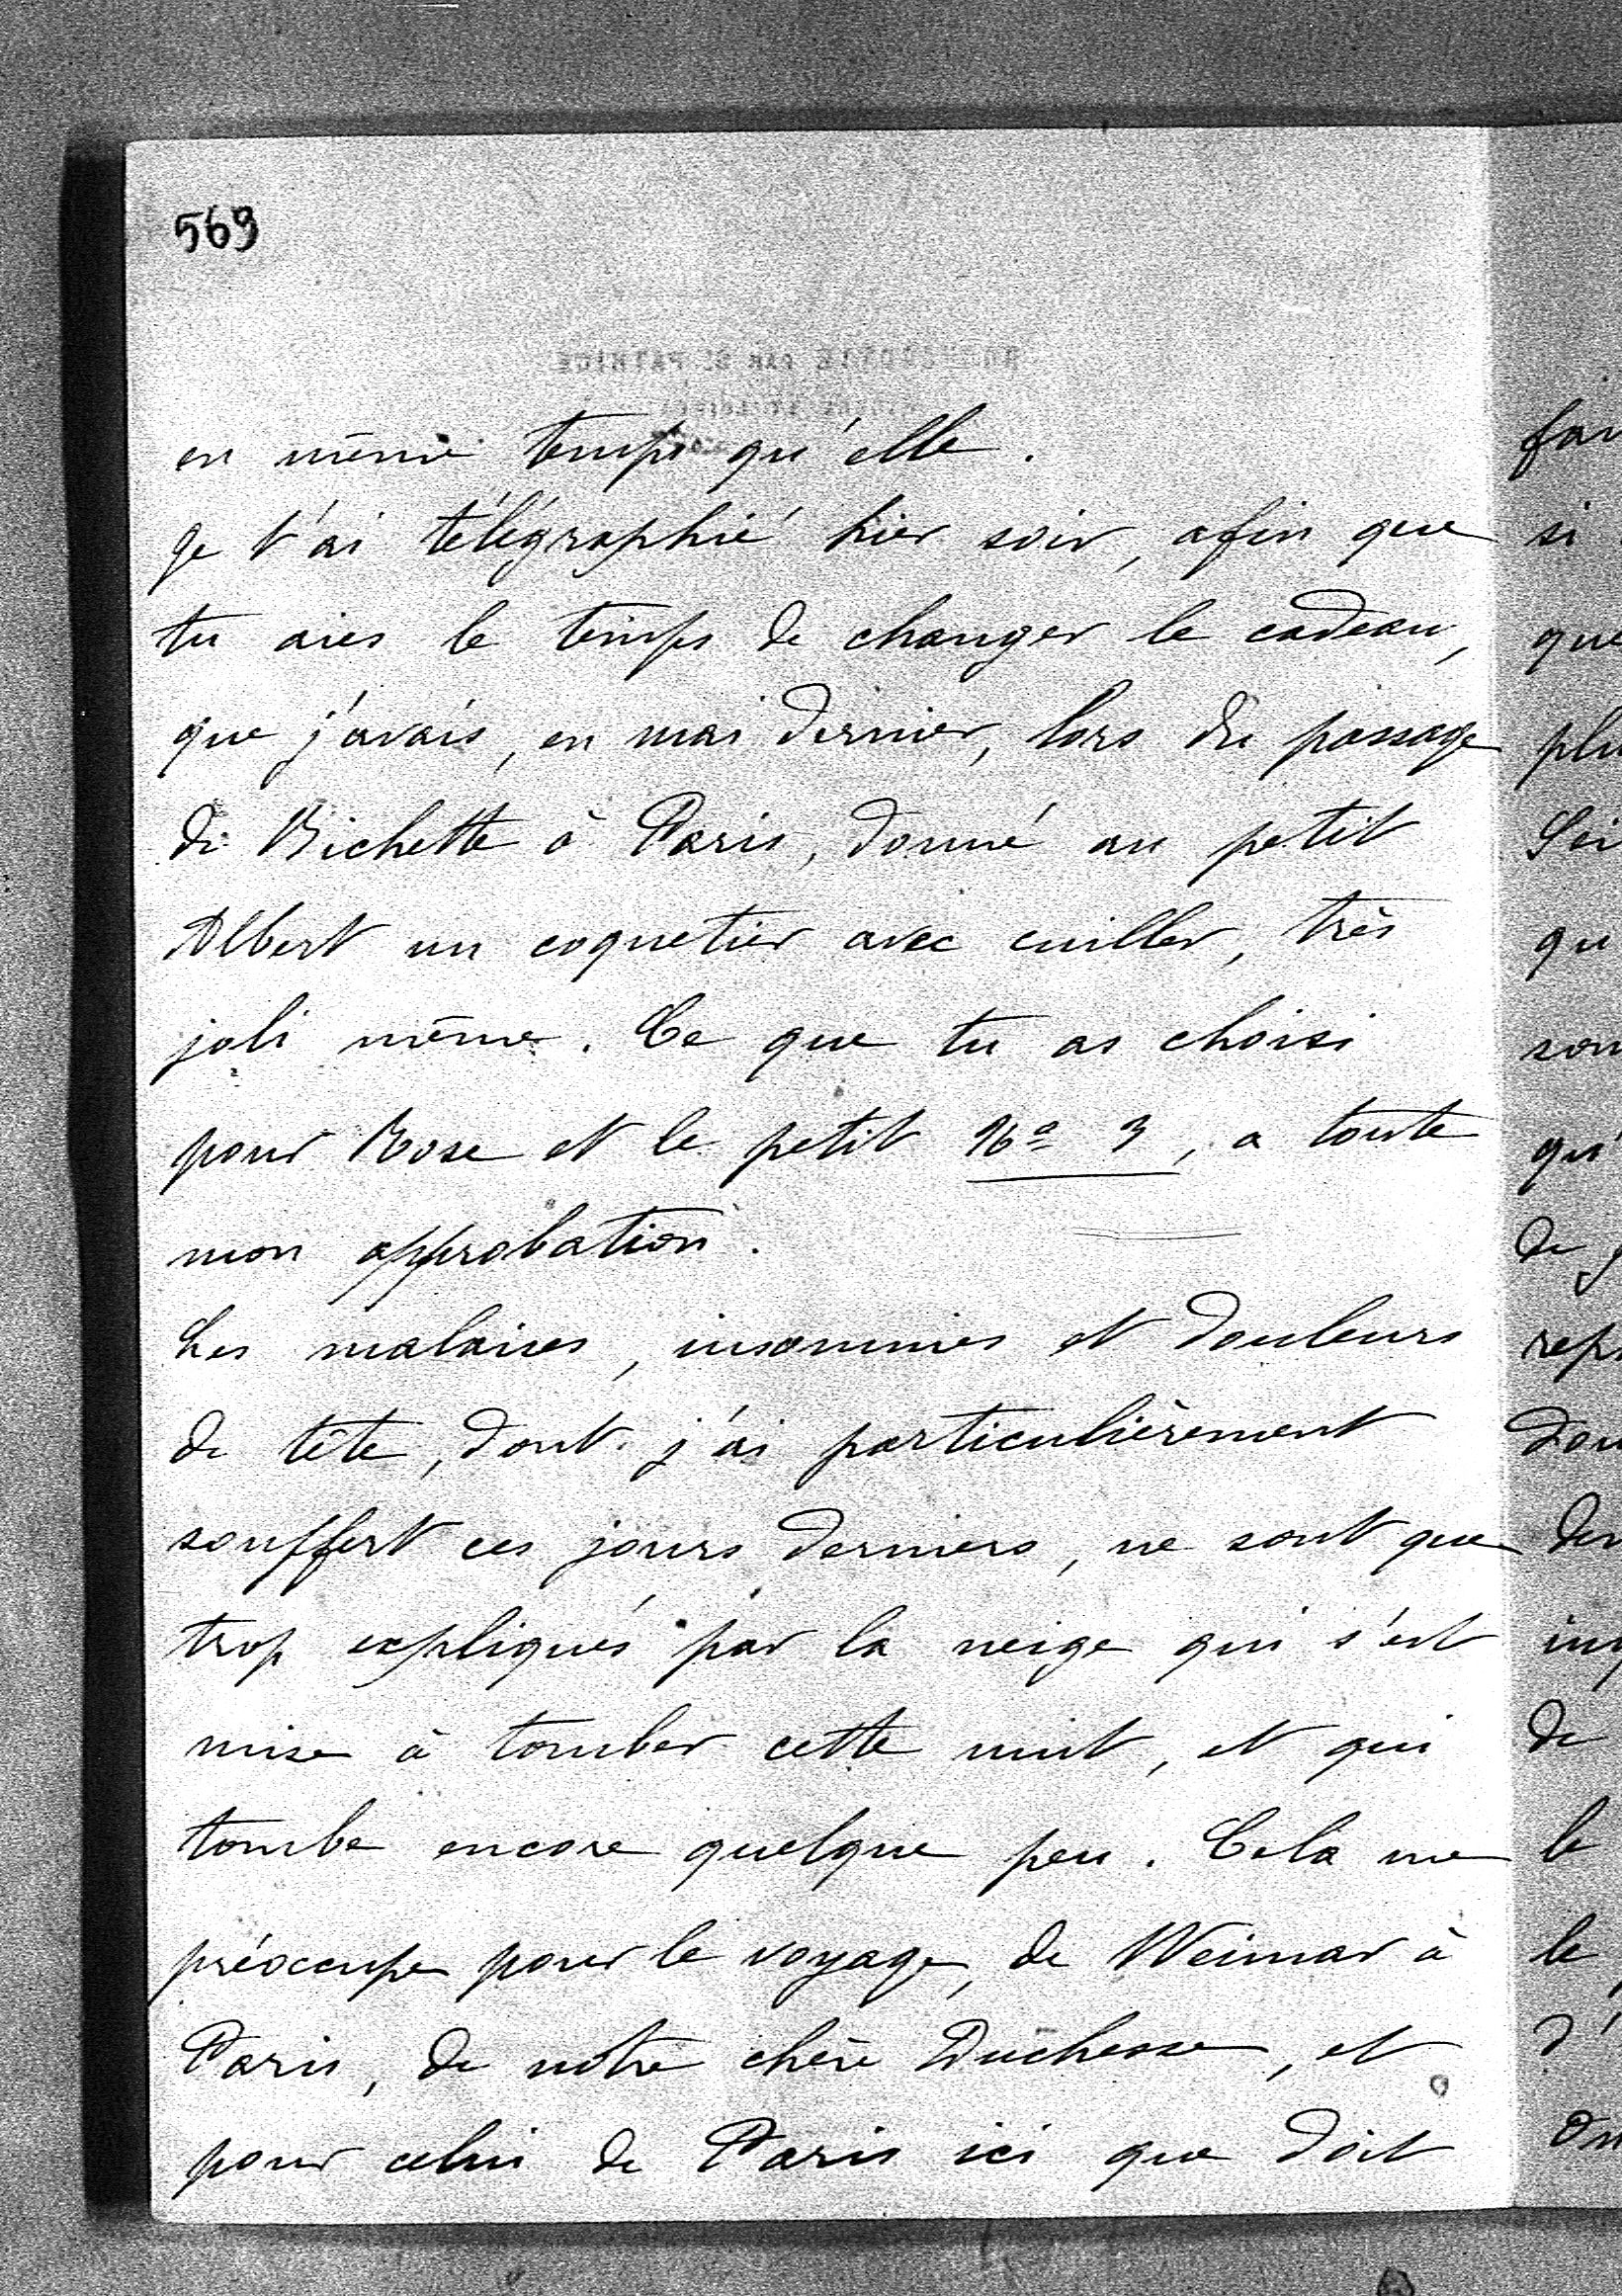 569
en même temps qu'elle.
Je t'ai télégraphié hier soir, afin que
tu aies le temps de changer le cadeau,
que j'avais, en mai dernier, lors du passage
de Bichette à Paris, donné au petit
Albert un coquetier avec cuiller, très
joli même. Ce que tu as choisi
pour Rose et le petit No 3, a toute
mon approbation.
Les malaises, insomnies et douleurs
de tête, dont j'ai particulièrement
souffert ces jours derniers, ne sont que
trop expliqués par la neige qui s'est
mise à tomber cette nuit, et qui
tombe encore quelque peu. Cela me
préoccupe pour le voyage, de Weimar à
Paris, de notre chère Duchesse, et
pour celui de Paris ici que doit